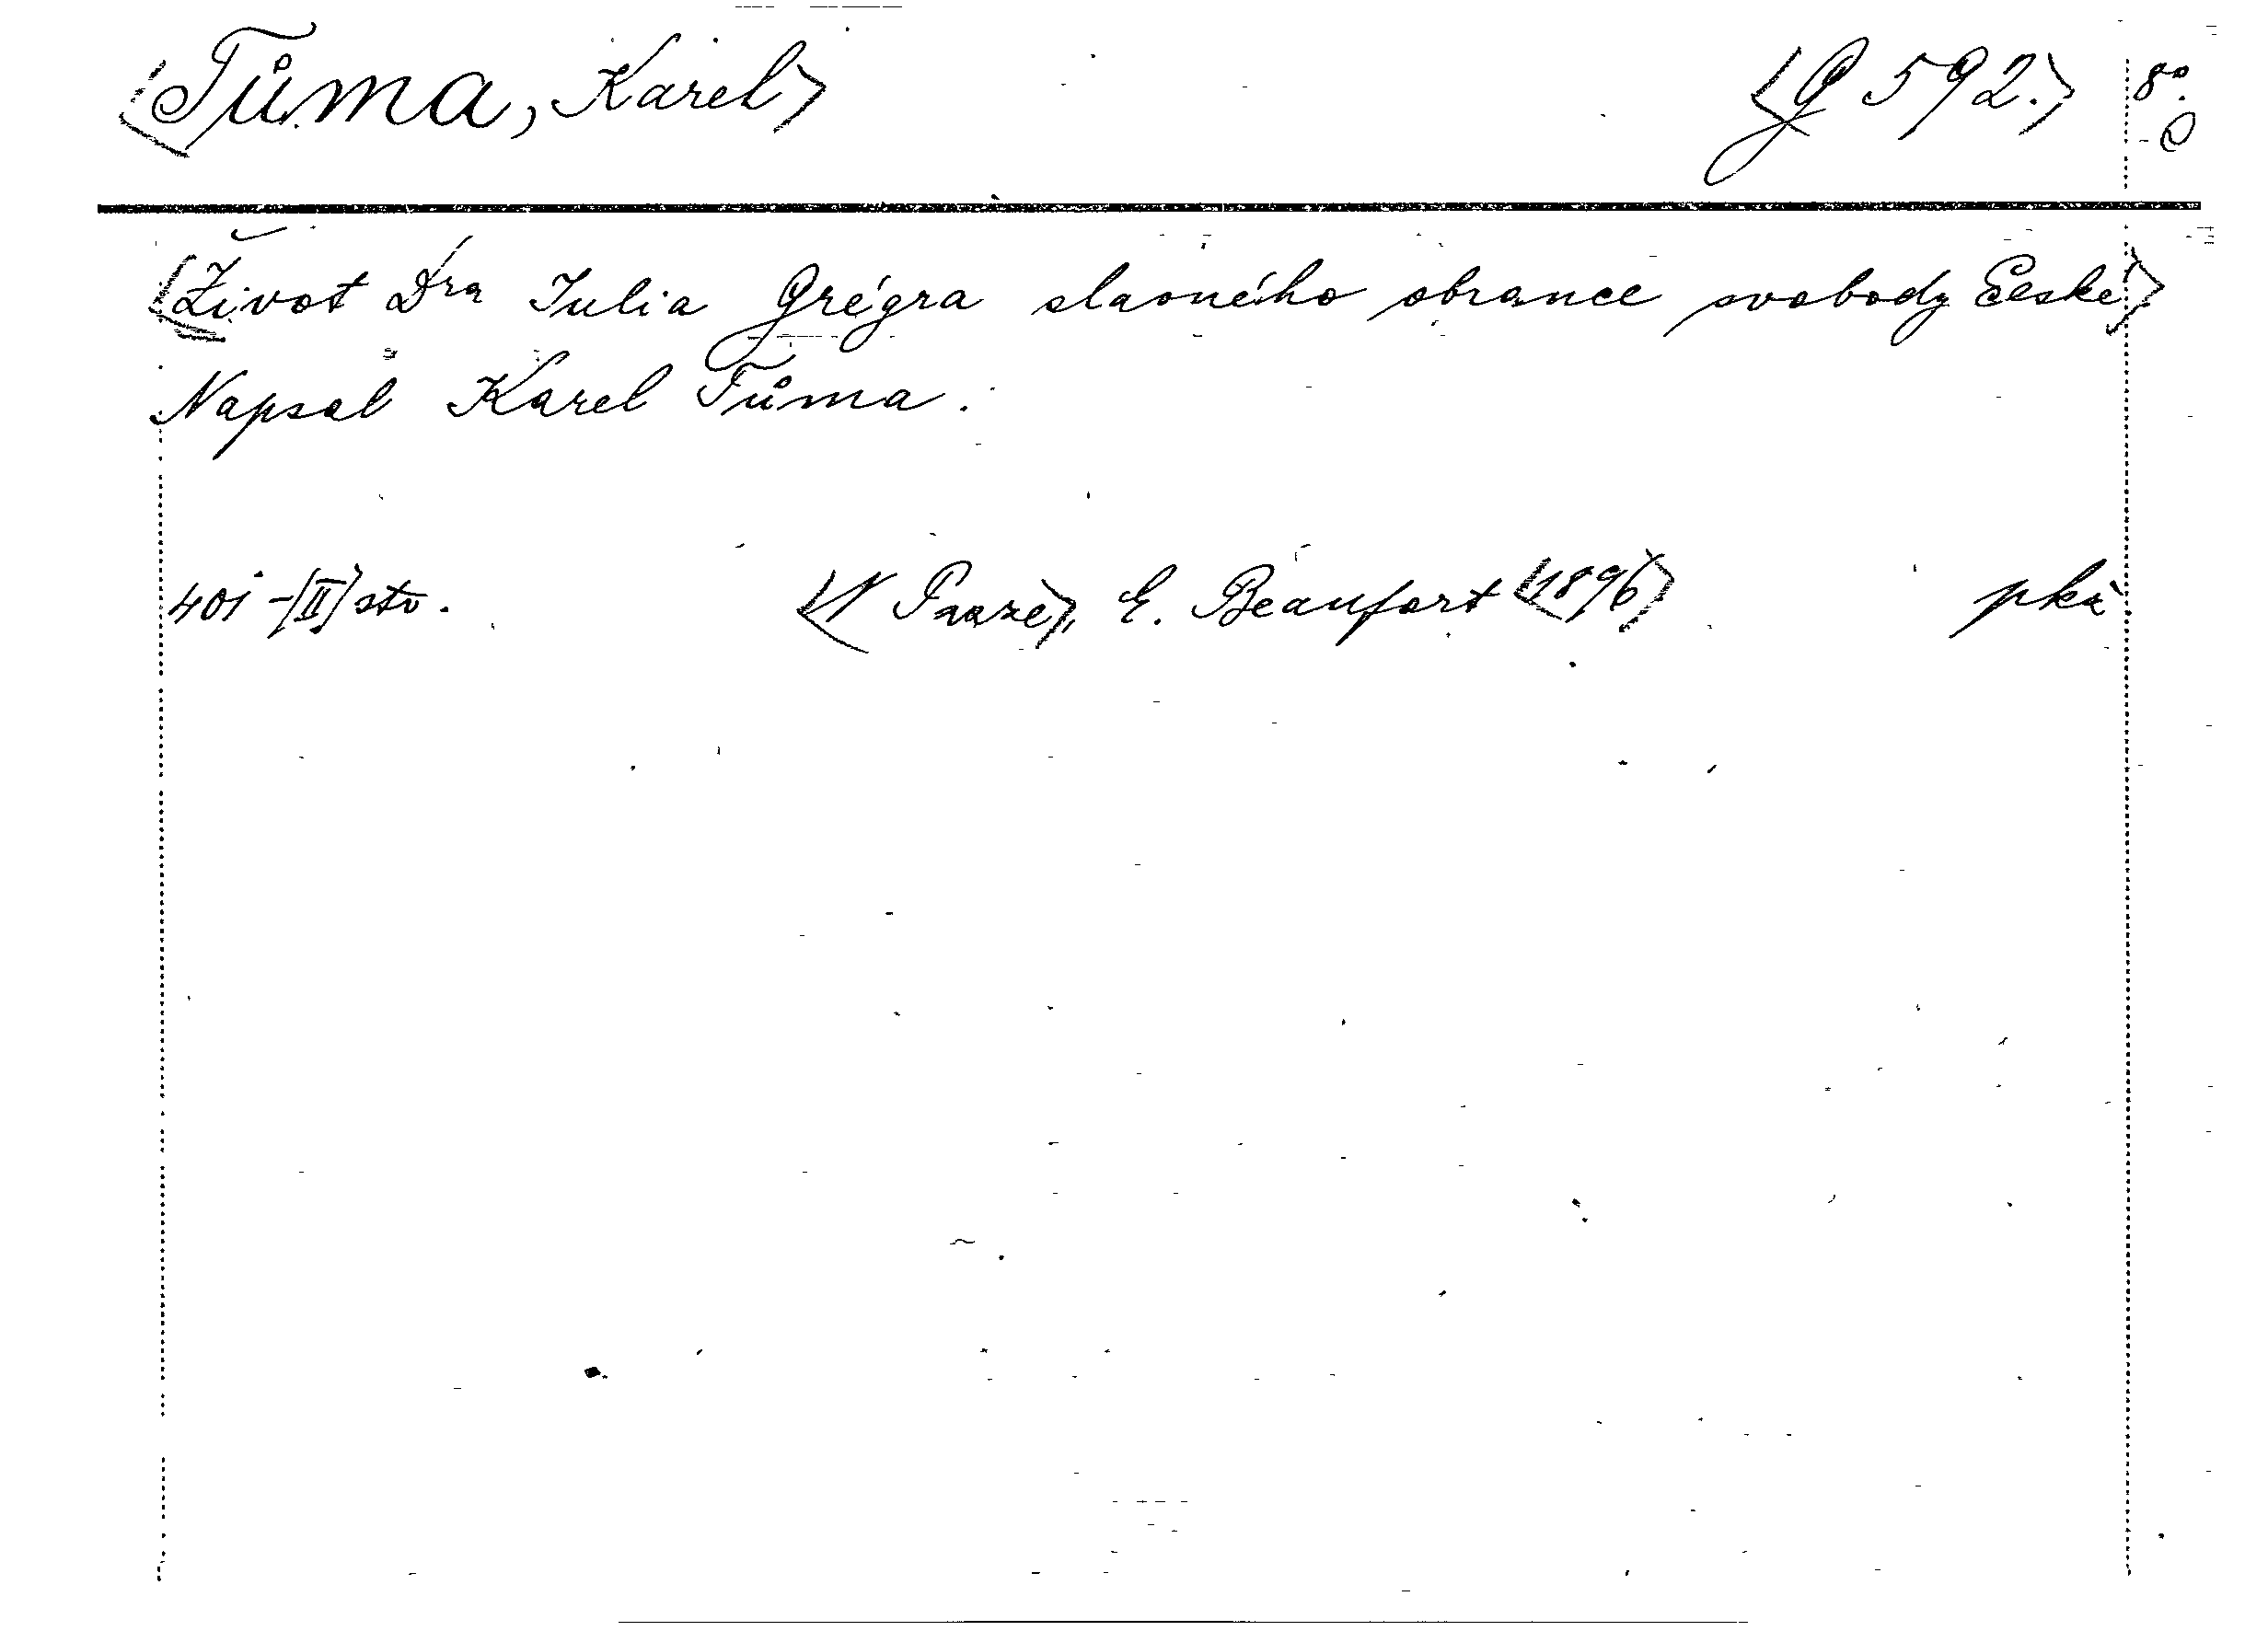 <Tůma, Karel> <G 592.> 8°.
<Život Dra Julia Grégra slavného obrance svobody České>
Napsal Karel Tůma.
401-[II] str. <V Praze>, E. Beaufort <1896>